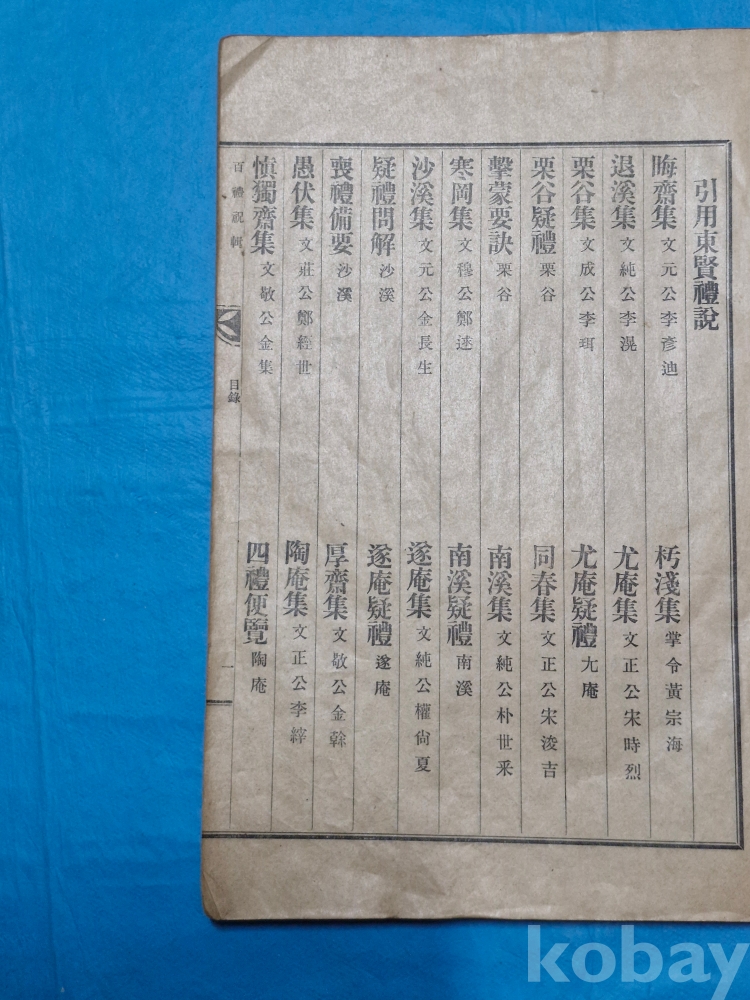 引用東賢禮說
晦齋集 文元公李彥迪 朽淺集 掌令黃宗海
退溪集 文純公李滉 尤庵集 文正公宋時烈
栗谷集 文成公李珥 尤庵疑禮 尢庵
栗谷疑禮 栗谷 同春集 文正公宋浚吉
擊蒙要訣 栗谷 南溪集 文純公朴世釆
寒岡集 文穆公鄭逑 南溪疑禮 南溪
沙溪集 文元公金長生 遂庵集 文純公權尙夏
疑禮問解 沙溪 遂庵疑禮 遂庵
喪禮備要 沙溪 厚齋集 文敬公金榦
愚伏集 文莊公鄭經世 陶庵集 文正公李縡
愼獨齋集 文敬公金集 四禮便覽 陶庵
百禮祝輯 目錄 一
kobay